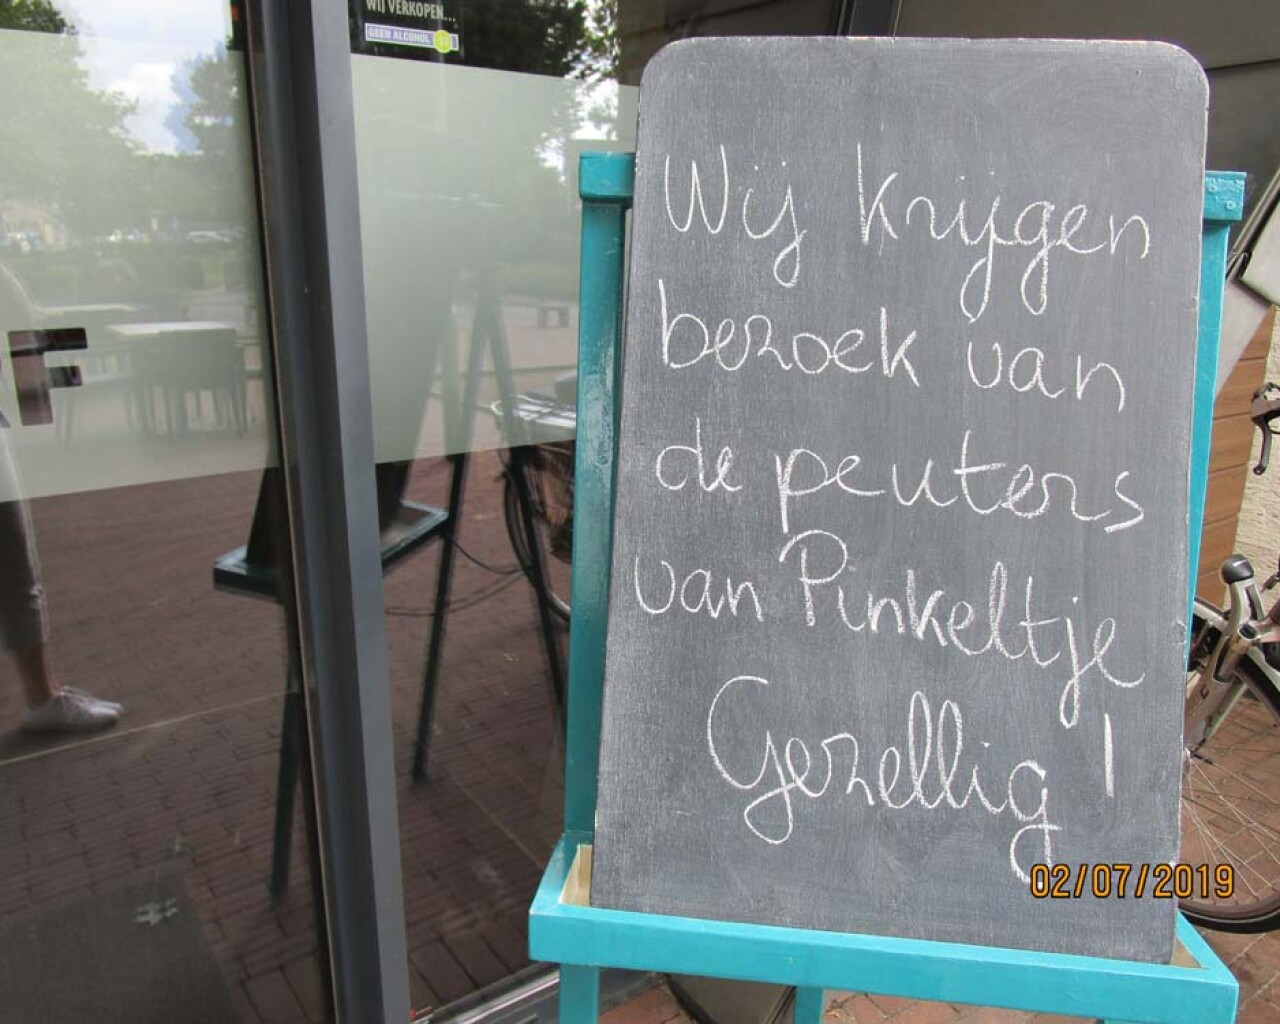 WIJ VERKOPEN...
GEEN ALCOHOL
F
Wij krijgen
bezoek van
de peuters
van Pinkeltje
Gezellig !
02/07/2019